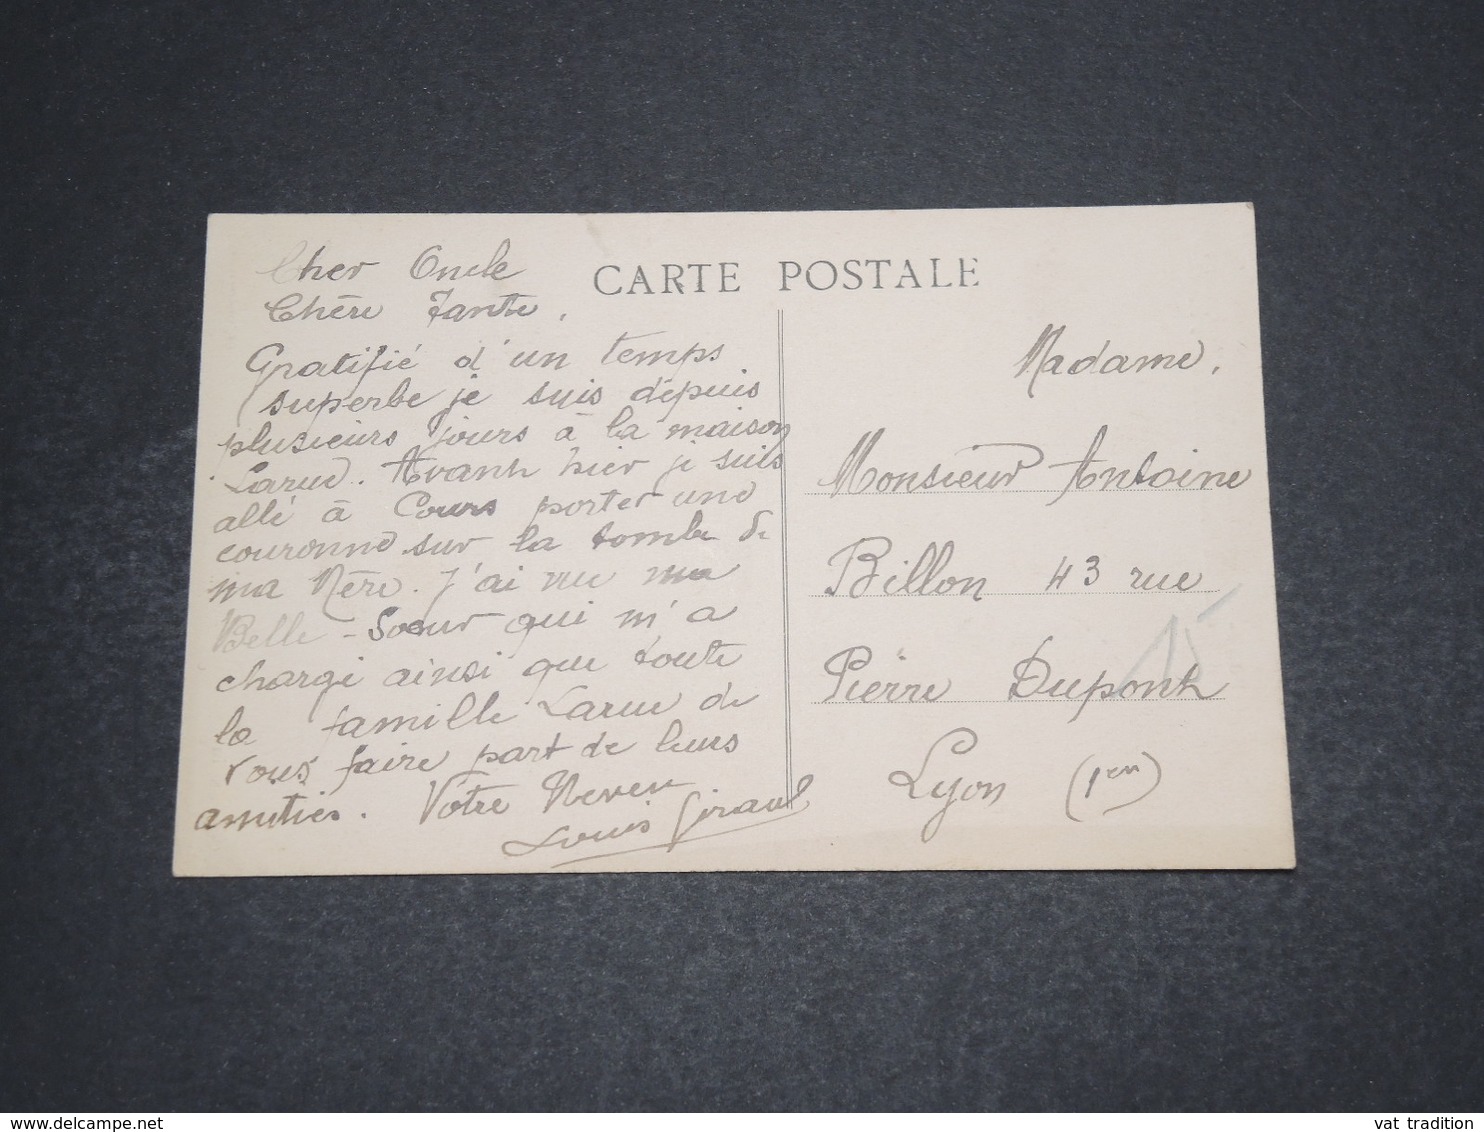 CARTE POSTALE
Cher Oncle
Chère Tante,
Gratifié d'un temps
superbe je suis depuis
plusieurs jours à la maison
Larue. Avant hier je suis
allé à Cours porter une
couronne sur la tombe de
ma Mère. J'ai vu ma
Belle-Sœur qui m'a
chargé ainsi que toute
la famille Larue de
vous faire part de leurs
amitiés. Votre Neveu
Louis Giraud
Madame,
Monsieur Antoine
Billon 43 rue
Pierre Dupont
Lyon (1er)
15
delcampe.net
vat tradition